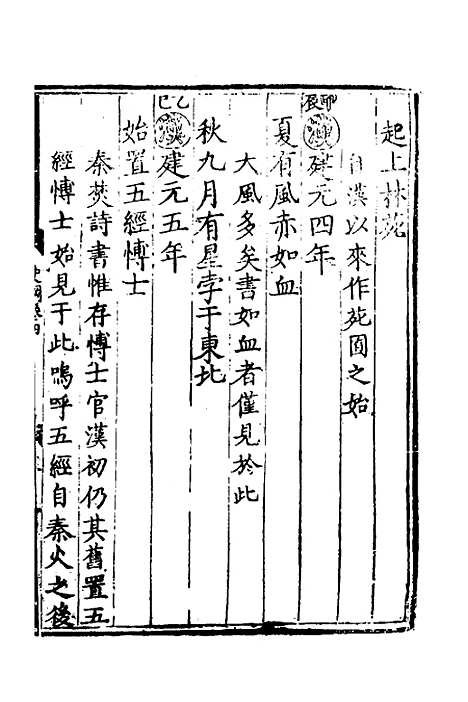 起上林苑
自漢以來作苑囿之始
甲辰
漢建元四年
夏有風赤如血
大風多矣書如血者僅見於此
秋九月有星孛于東北
乙巳
漢建元五年
始置五經博士
秦焚詩書惟存博士官漢初仍其舊置五
經博士始見于此嗚呼五經自秦火之後
史綱卷四